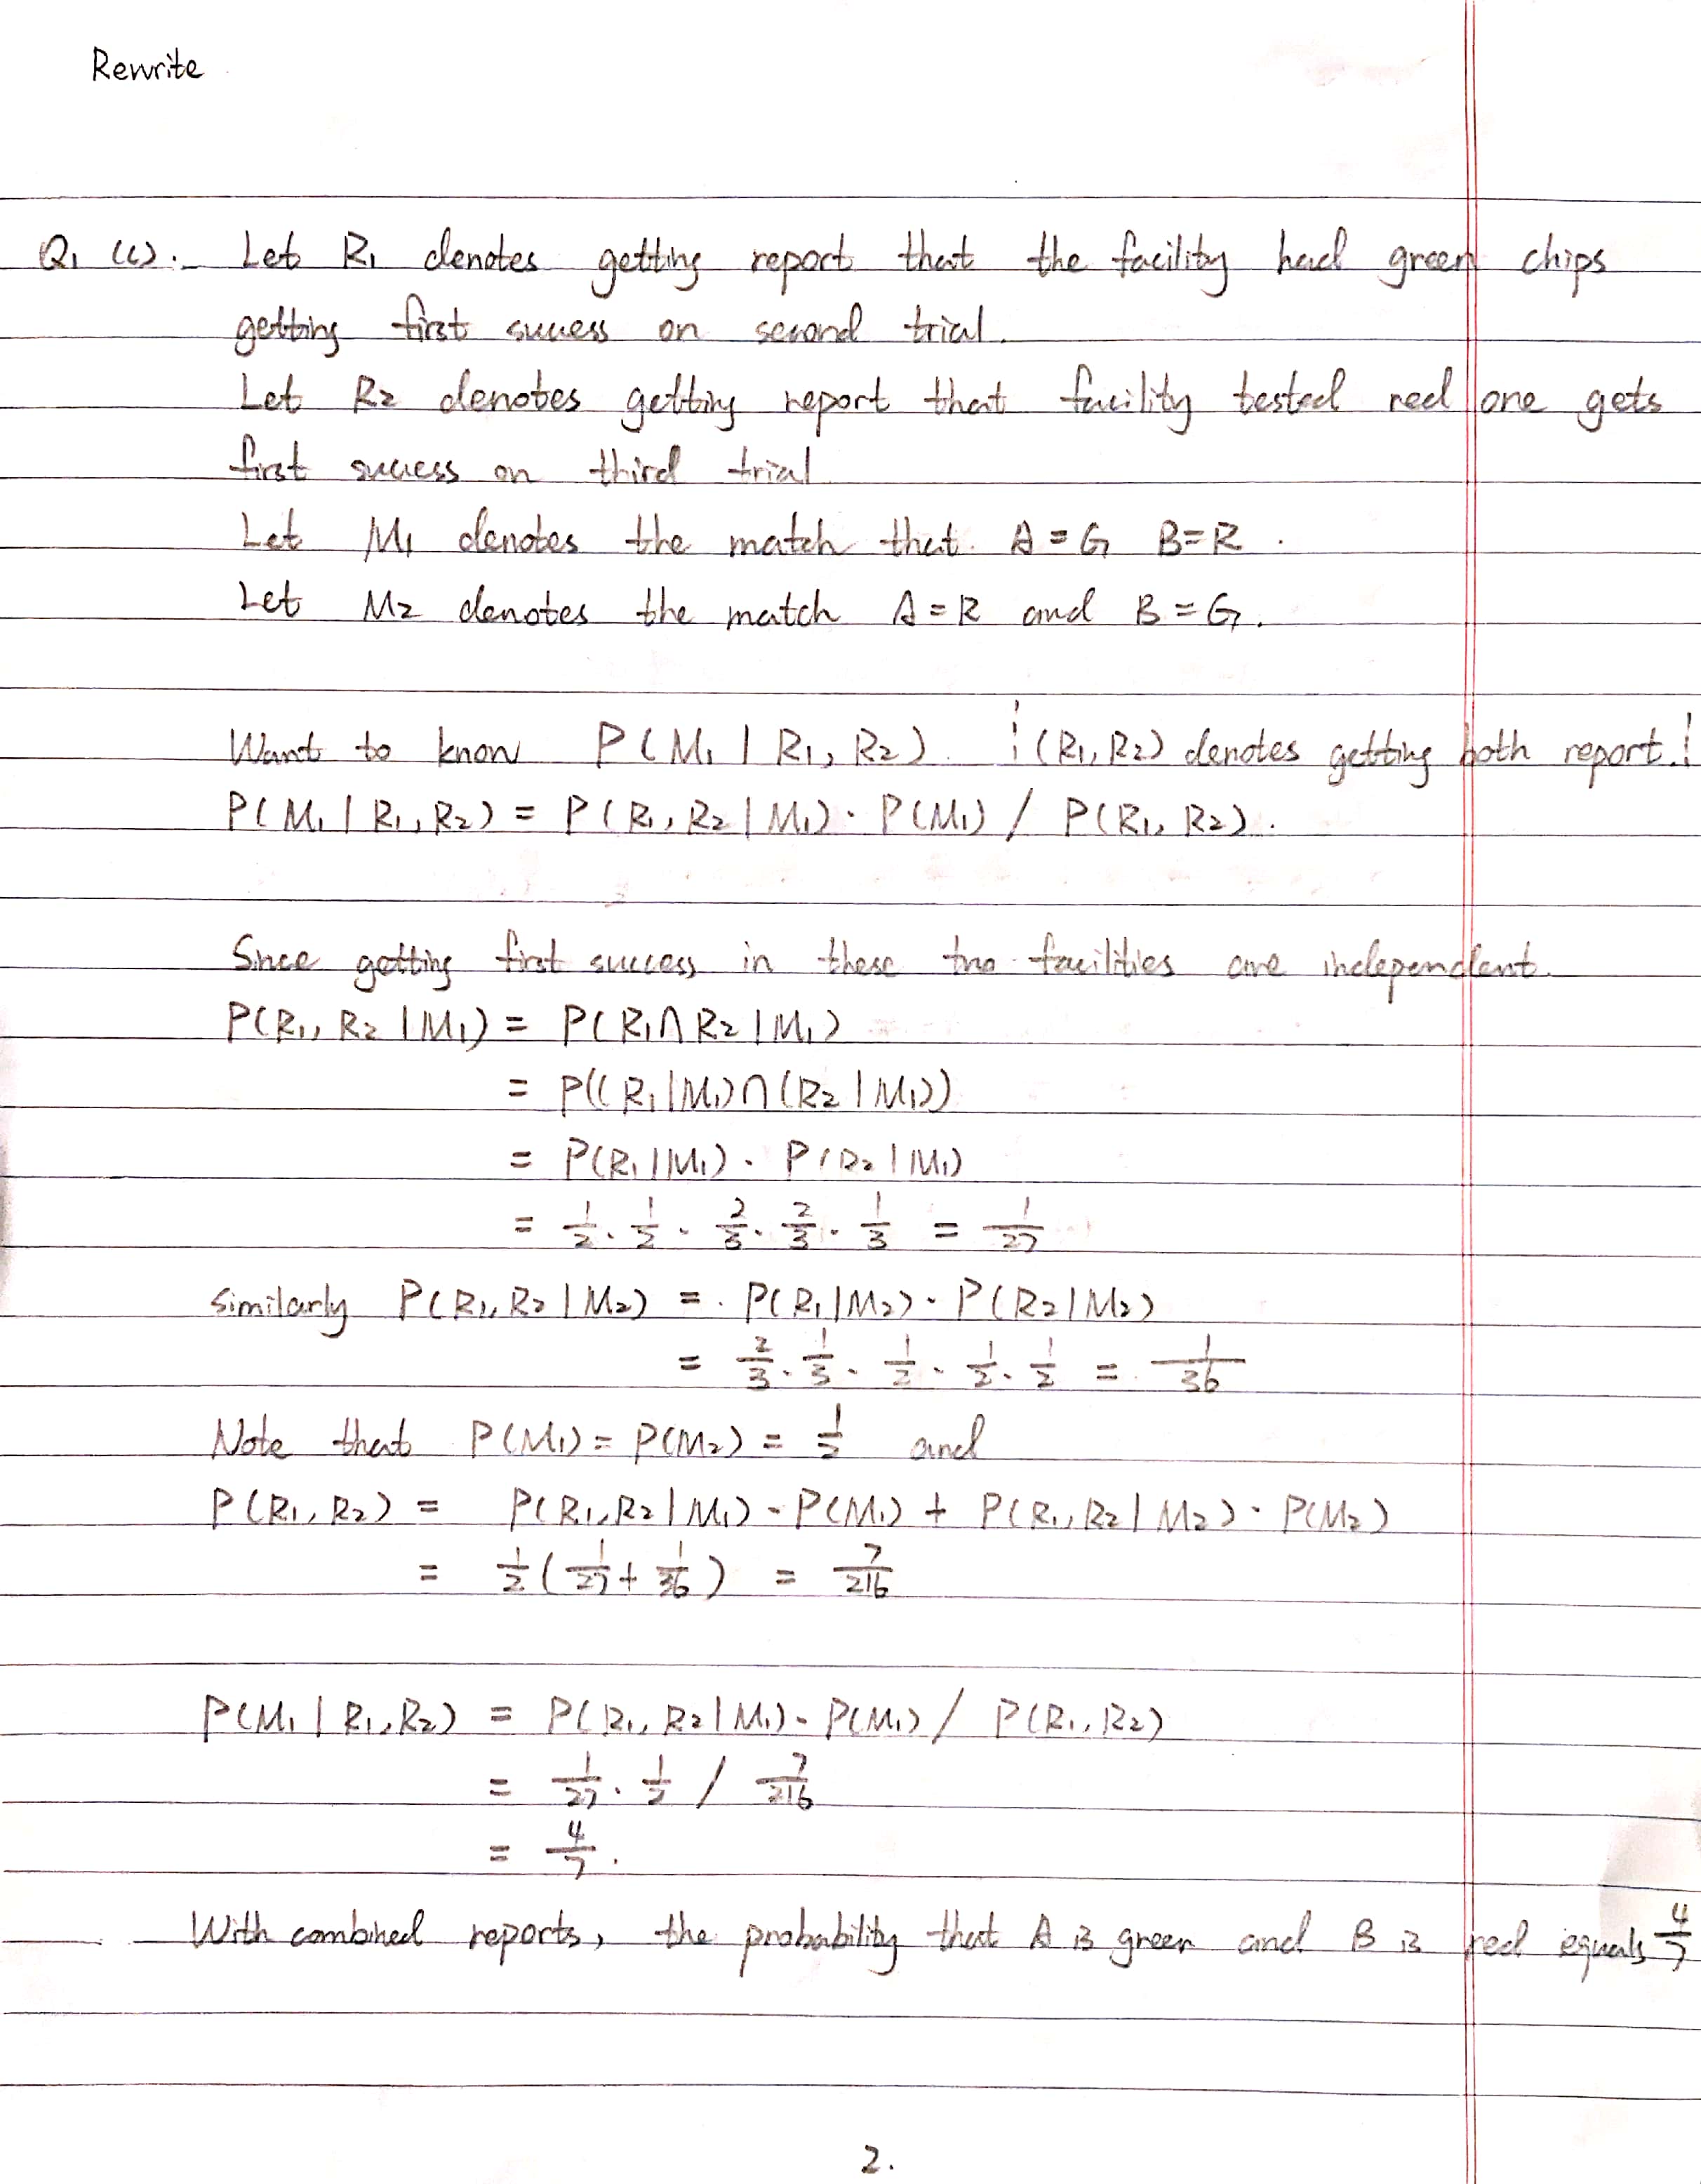 Rewrite
Q1 (c). Let R1 denotes getting report that the facility had green chips
getting first success on second trial.
Let R2 denotes getting report that facility tested red one gets
first success on third trial
Let M1 denotes the match that A = G B = R .
Let M2 denotes the match A = R and B = G.
Want to know P(M1 | R1, R2). (R1, R2) denotes getting both report.
P(M1 | R1, R2) = P(R1, R2 | M1) · P(M1) / P(R1, R2).
Since getting first success in these two facilities are independent.
P(R1, R2 | M1) = P(R1 ∩ R2 | M1)
= P((R1 | M1) ∩ (R2 | M1))
= P(R1 | M1) · P(R2 | M1)
= 1/2 · 1/2 · 2/3 · 2/3 · 1/3 = 1/27
similarly P(R1, R2 | M2) = P(R1 | M2) · P(R2 | M2)
= 2/3 · 1/3 · 1/2 · 1/2 · 1/2 = 1/36
Note that P(M1) = P(M2) = 1/2 and
P(R1, R2) = P(R1, R2 | M1) · P(M1) + P(R1, R2 | M2) · P(M2)
= 1/2 (1/27 + 1/36) = 7/216
P(M1 | R1, R2) = P(R1, R2 | M1) · P(M1) / P(R1, R2)
= 1/27 · 1/2 / 7/216
= 4/7 .
With combined reports, the probability that A is green and B is red equals 4/7
2.